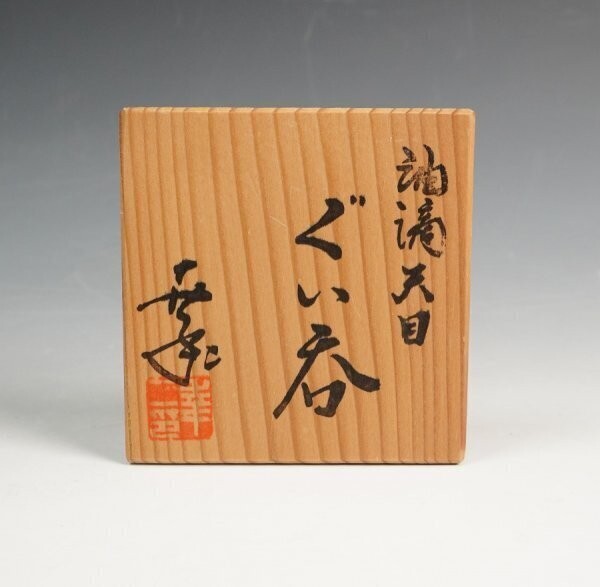 油滴天目
ぐい呑